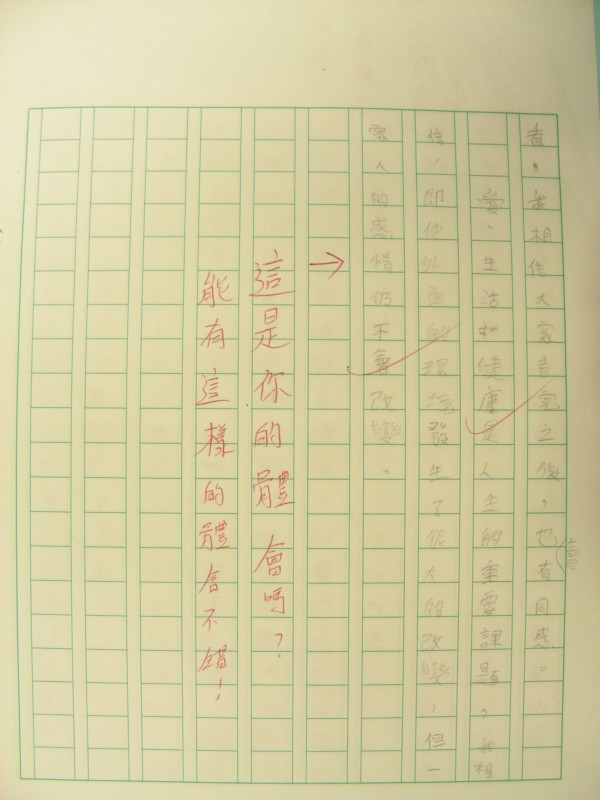 者。我相信大家看完之後，也（會）有同感。
愛、生活和健康是人生的重要課題。我相
信，即使外面的環境發生了很大的改變，但一
家人的感情仍不會改變。
→
這是你的體會嗎？
能有這樣的體會不錯！